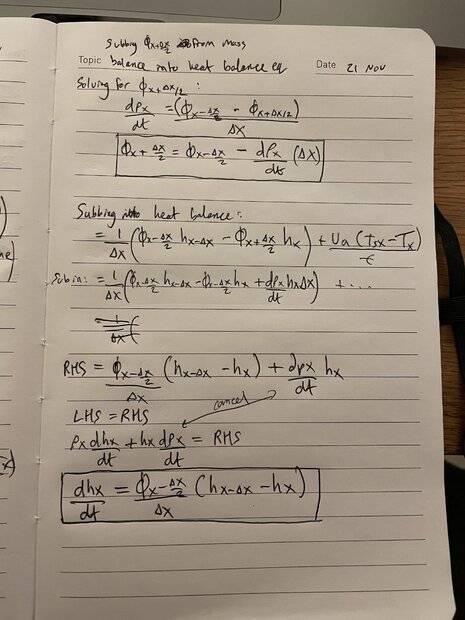 Subbing ϕx+Δx/2 from mass
Topic balance into heat balance eq Date 21 NOV
Solving for ϕx+Δx/2 :
dρx/dt = (ϕx-Δx/2 - ϕx+Δx/2)/Δx
ϕx+Δx/2 = ϕx-Δx/2 - dρx/dt (Δx)
Subbing into heat balance:
= 1/Δx (ϕx-Δx/2 hx-Δx - ϕx+Δx/2 hx) + Ua (Tsx-Tx)/ε
Sub in: = 1/Δx (ϕx-Δx/2 hx-Δx - ϕx-Δx/2 hx + dρx/dt hxΔx) + ...
RHS = ϕx-Δx/2/Δx (hx-Δx - hx) + dρx/dt hx
cancel
LHS = RHS
ρx dhx/dt + hx dρx/dt = RHS
dhx/dt = ϕx-Δx/2/Δx (hx-Δx - hx)